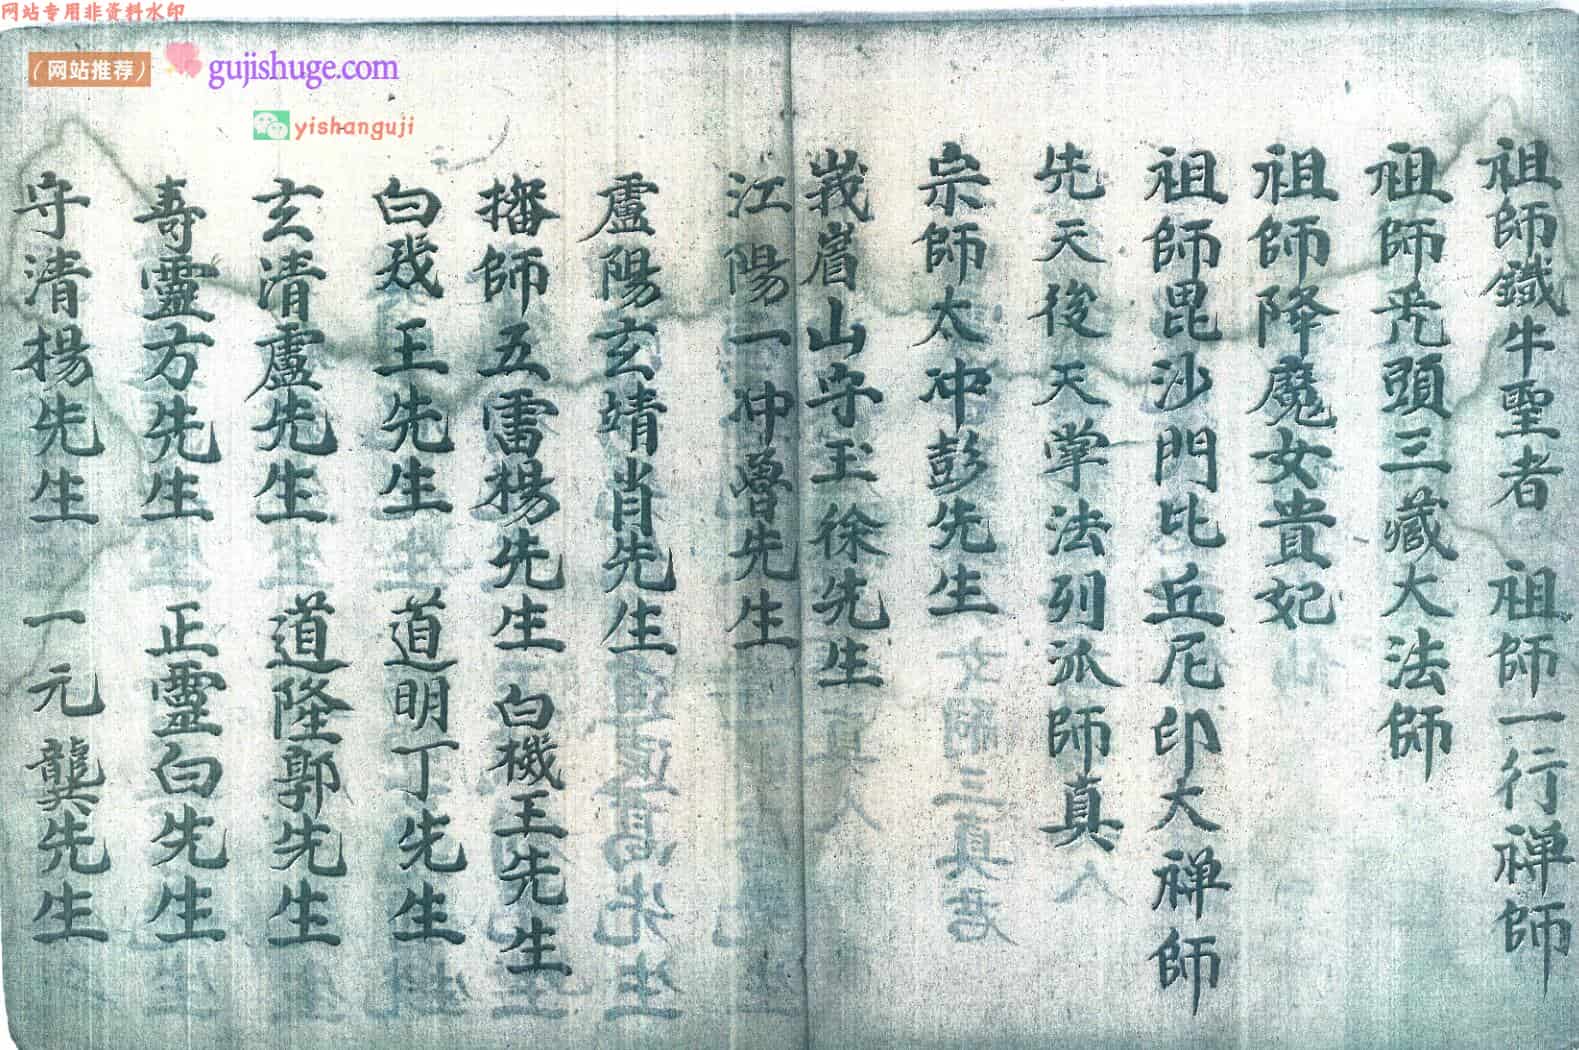 网站专用非资料水印
（网站推荐）
gujishuge.com
yishanguji
祖師鐵牛聖者 祖師一行禅師
祖師禿頭三藏大法師
祖師降魔女貴妃
祖師毘沙門比丘尼印大禅師
先天後天掌法列派師真
宗師太冲彭先生
峩眉山守玉徐先生
江陽一冲曾先生
盧陽玄靖肖先生
播師五雷楊先生 白機王先生
白我王先生 道明丁先生
玄清盧先生 道隆郭先生
壽靈方先生 正靈白先生
守清楊先生 一元龔先生